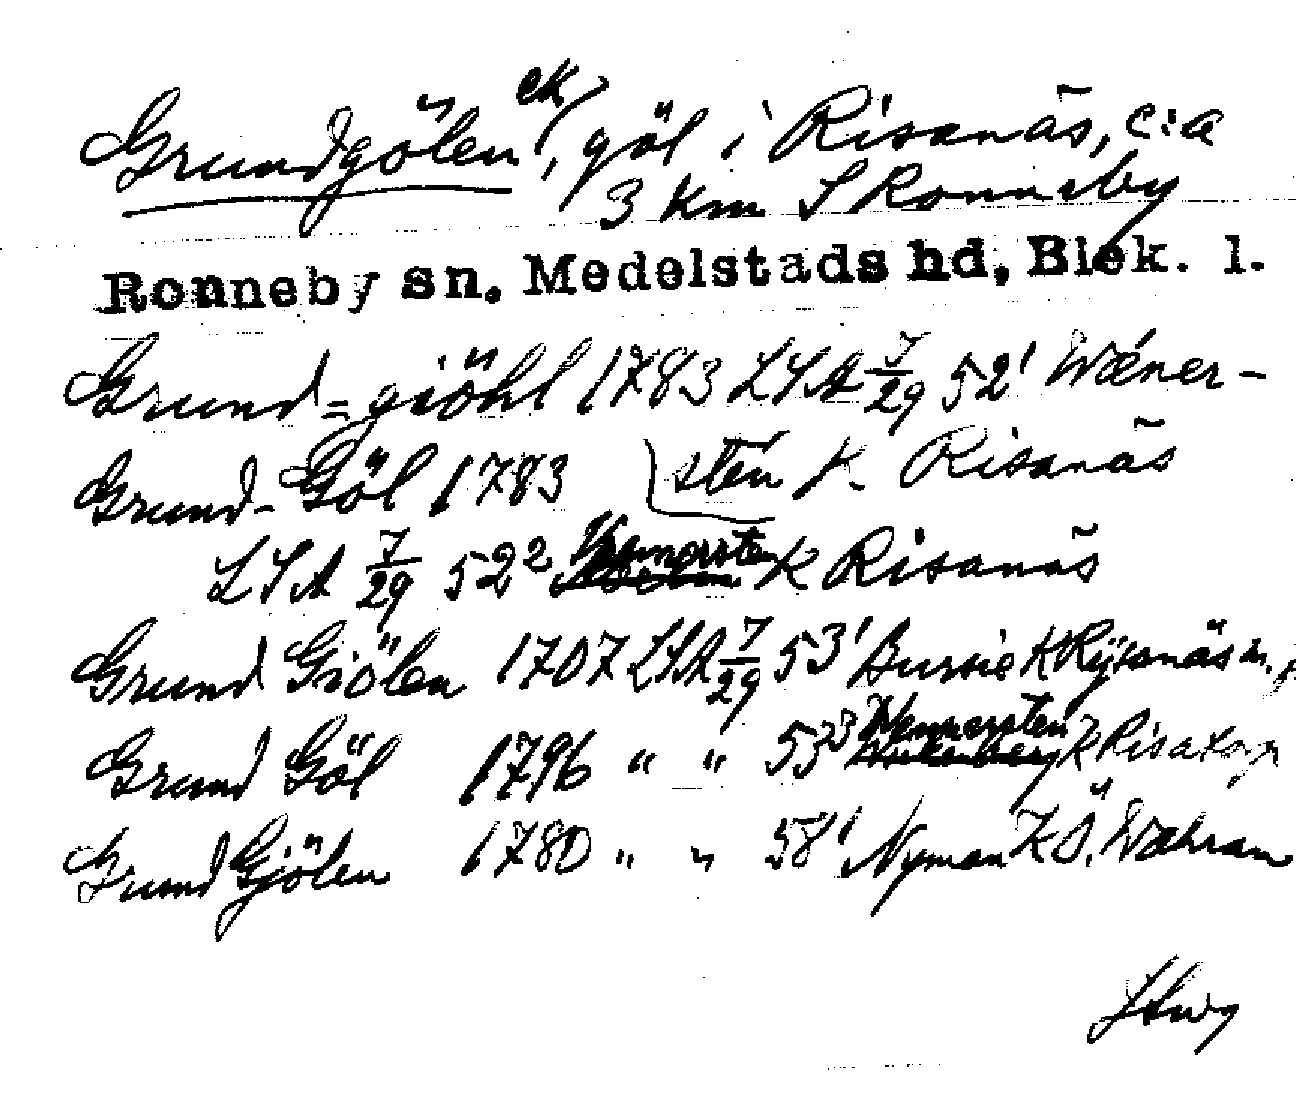 Grundgölen (ek), göl i Risanäs, c:a
3 km S Ronneby
Ronneby sn. Medelstads hd, Blek. l.
Grund=giöhl 1783 LSA 7/29 52¹ Wäner-
Grund-Göl 1783 sten K. Risanäs
LSA 7/29 52² Wennersten K Risanäs
Grund Giölen 1707 LSA 7/29 53¹ Bursie K Rÿsanäs
Grund Göl 1796 " " 53³ Wennersten K Risatorp
Grund Gjölen 1780 " " 58¹ Nyman K Ö. Wæhran